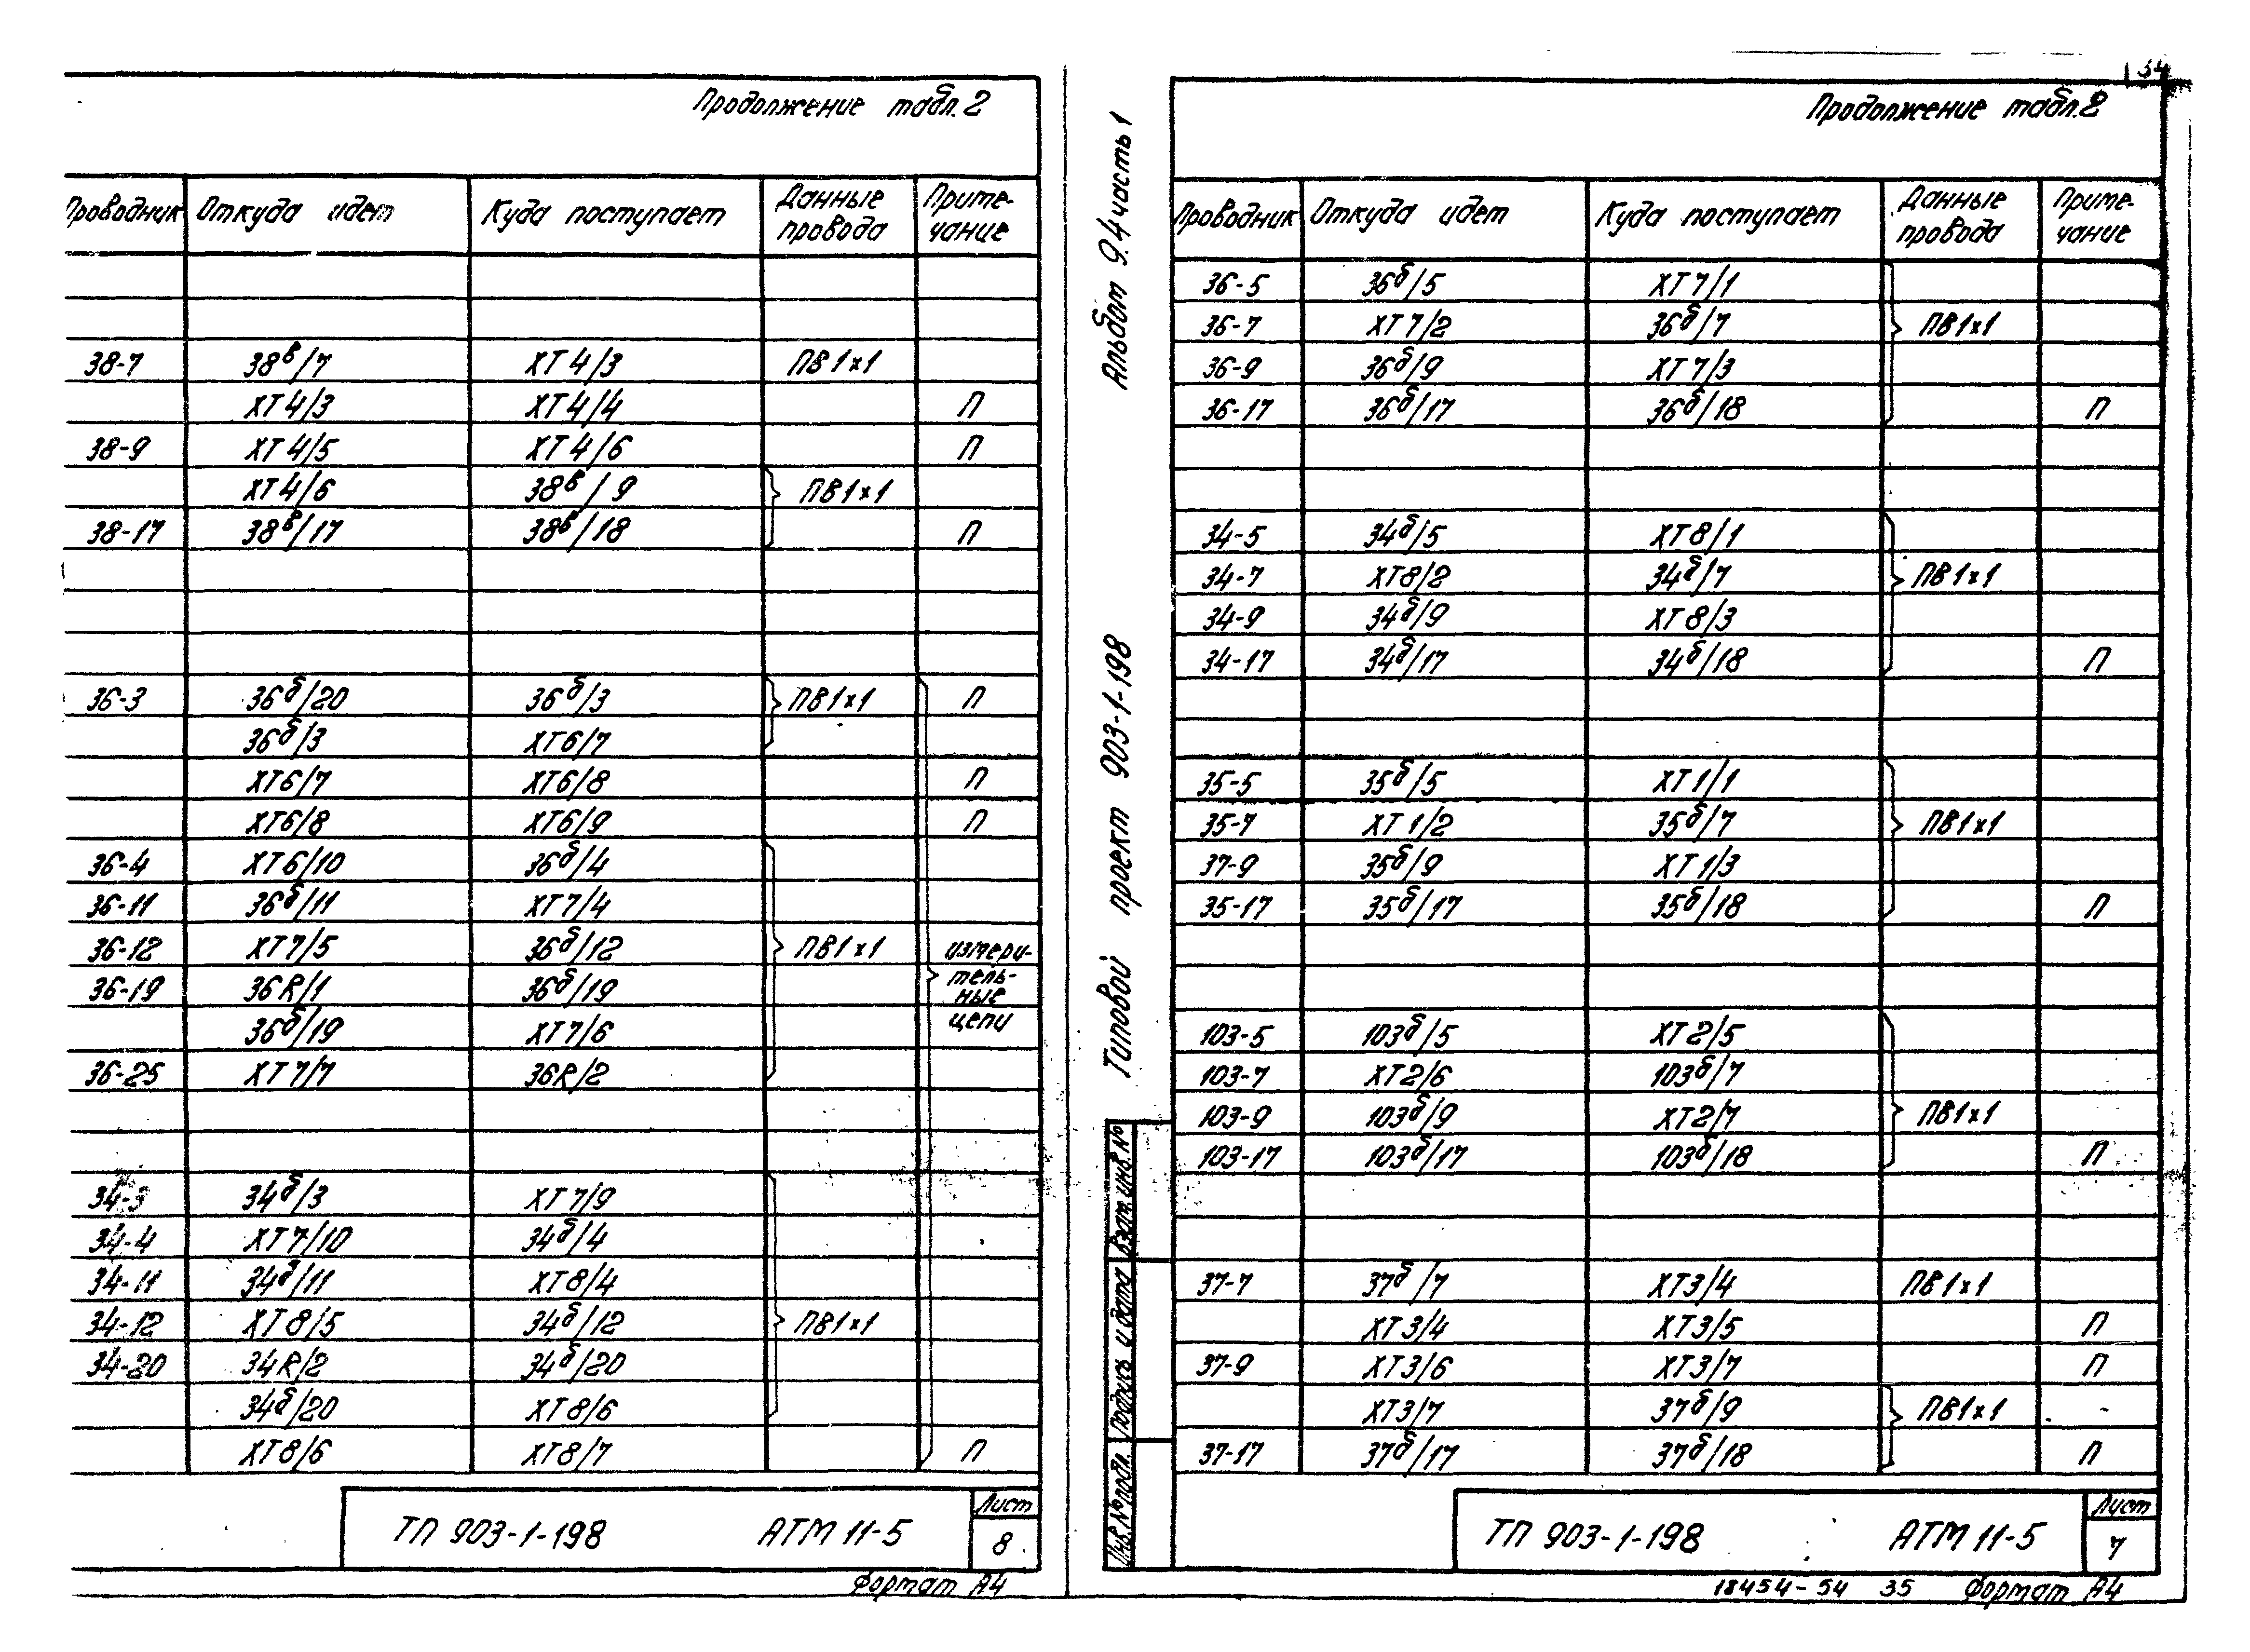 Продолжение табл. 2
Проводник Откуда идет Куда поступает Данные провода Примечание
38-7 38в/7 ХТ4/3 ПВ1х1
ХТ4/3 ХТ4/4 П
38-9 ХТ4/5 ХТ4/6 П
ХТ4/6 38в/9 ПВ1х1
38-17 38в/17 38в/18 П
36-3 36б/20 36б/3 ПВ1х1 П
36б/3 ХТ6/7
ХТ6/7 ХТ6/8 П
ХТ6/8 ХТ6/9 П
36-4 ХТ6/10 36б/4
36-11 36б/11 ХТ7/4
36-12 ХТ7/5 36б/12 ПВ1х1 измери-
36-19 36R/1 36б/19 тель-
ные
36б/19 ХТ7/6 цепи
36-25 ХТ7/7 36R/2
34-3 34б/3 ХТ7/9
34-4 ХТ7/10 34б/4
34-11 34б/11 ХТ8/4
34-12 ХТ8/5 34б/12 ПВ1х1
34-20 34R/2 34б/20
34б/20 ХТ8/6
ХТ8/6 ХТ8/7 П
ТП 903-1-198 АТМ 11-5 Лист 8
Формат А4
Альбом 9.4 часть 1
Типовой проект 903-1-198
Взам. инв. №
Подпись и дата
Инв. № подл.
34
Продолжение табл. 2
Проводник Откуда идет Куда поступает Данные провода Примечание
36-5 36б/5 ХТ7/1
36-7 ХТ7/2 36б/7 ПВ1х1
36-9 36б/9 ХТ7/3
36-17 36б/17 36б/18 П
34-5 34б/5 ХТ8/1
34-7 ХТ8/2 34б/7 ПВ1х1
34-9 34б/9 ХТ8/3
34-17 34б/17 34б/18 П
35-5 35б/5 ХТ1/1
35-7 ХТ1/2 35б/7 ПВ1х1
37-9 35б/9 ХТ1/3
35-17 35б/17 35б/18 П
103-5 103б/5 ХТ2/5
103-7 ХТ2/6 103б/7
103-9 103б/9 ХТ2/7 ПВ1х1
103-17 103б/17 103б/18 П
37-7 37б/7 ХТ3/4 ПВ1х1
ХТ3/4 ХТ3/5 П
37-9 ХТ3/6 ХТ3/7 П
ХТ3/7 37б/9 ПВ1х1
37-17 37б/17 37б/18 П
ТП 903-1-198 АТМ 11-5 Лист 7
18454-54 35 Формат А4